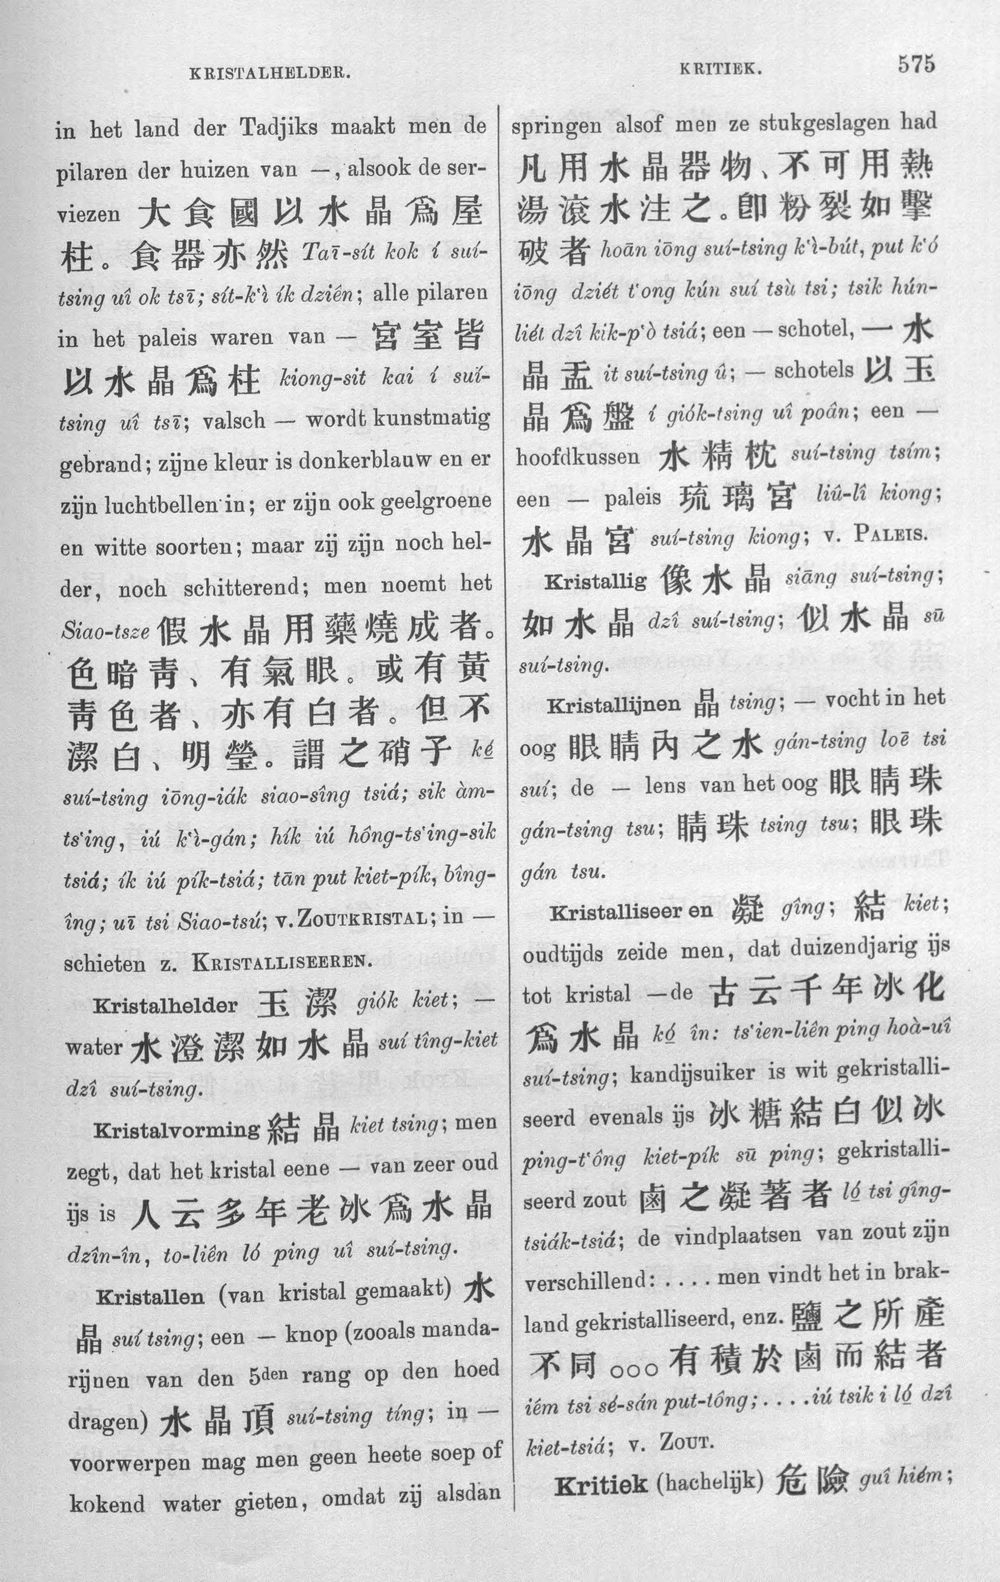 KRISTALHELDER.
KRITIEK.
575
in het land der Tadjiks maakt men de
pilaren der huizen van —, alsook de ser-
viezen 大食國以水晶爲屋
柱。食器亦然 Taī-sít kok í suí-
tsing uî ok tsī; sít-k'ì ík dziên; alle pilaren
in het paleis waren van — 宮室皆
以水晶爲柱 kiong-sit kai í suí-
tsing uî tsī; valsch — wordt kunstmatig
gebrand; zijne kleur is donkerblauw en er
zijn luchtbellen in; er zijn ook geelgroene
en witte soorten; maar zij zijn noch hel-
der, noch schitterend; men noemt het
Siao-tsze 假水晶用藥燒成者。
色暗靑、有氣眼。或有黃
靑色者、亦有白者。但不
潔白、明瑩。謂之硝子 ké
suí-tsing iōng-iák siao-sîng tsiá; sik àm-
ts'ing, iú k'ì-gán; hík iú hông-ts'ing-sik
tsiá; ík iú pík-tsiá; tān put kiet-pík, bîng-
îng; uī tsi Siao-tsú; v. ZOUTKRISTAL; in —
schieten z. KRISTALLISEEREN.
Kristalhelder 玉潔 giók kiet; —
water 水澄潔如水晶 suí tîng-kiet
dzî suí-tsing.
Kristalvorming 結晶 kiet tsing; men
zegt, dat het kristal eene — van zeer oud
ijs is 人云多年老冰爲水晶
dzîn-în, to-liên ló ping uî suí-tsing.
Kristallen (van kristal gemaakt) 水
晶 suí tsing; een — knop (zooals manda-
rijnen van den 5den rang op den hoed
dragen) 水晶頂 suí-tsing tíng; in —
voorwerpen mag men geen heete soep of
kokend water gieten, omdat zij alsdan
springen alsof men ze stukgeslagen had
凡用水晶器物、不可用熱
湯滾水注之。卽粉裂如擊
破者 hoān iōng suí-tsing k'ì-bút, put k'ó
iōng dziét t'ong kún suí tsù tsi; tsik hún-
liét dzî kik-p'ò tsiá; een — schotel, 一水
晶盂 it suí-tsing û; — schotels 以玉
晶爲盤 í giók-tsing uî poân; een —
hoofdkussen 水精枕 suí-tsing tsím;
een — paleis 琉璃宮 liû-lî kiong;
水晶宮 suí-tsing kiong; v. PALEIS.
Kristallig 像水晶 siāng suí-tsing;
如水晶 dzî suí-tsing; 似水晶 sū
suí-tsing.
Kristallijnen 晶 tsing; — vocht in het
oog 眼睛內之水 gán-tsing loē tsi
suí; de — lens van het oog 眼睛珠
gán-tsing tsu; 睛珠 tsing tsu; 眼珠
gán tsu.
Kristalliseeren 凝 gîng; 結 kiet;
oudtijds zeide men, dat duizendjarig ijs
tot kristal —de 古云千年冰化
爲水晶 kó în: ts'ien-liên ping hoà-uî
suí-tsing; kandijsuiker is wit gekristalli-
seerd evenals ijs 冰糖結白似冰
ping-t'ông kiet-pík sū ping; gekristalli-
seerd zout 鹵之凝著者 ló tsi gîng-
tsiák-tsiá; de vindplaatsen van zout zijn
verschillend: .... men vindt het in brak-
land gekristalliseerd, enz. 鹽之所產
不同 ○○○ 有積於鹵而結者
iêm tsi sé-sán put-tông; .... iú tsik i ló dzî
kiet-tsiá; v. ZOUT.
Kritiek (hachelijk) 危險 guî hiém;